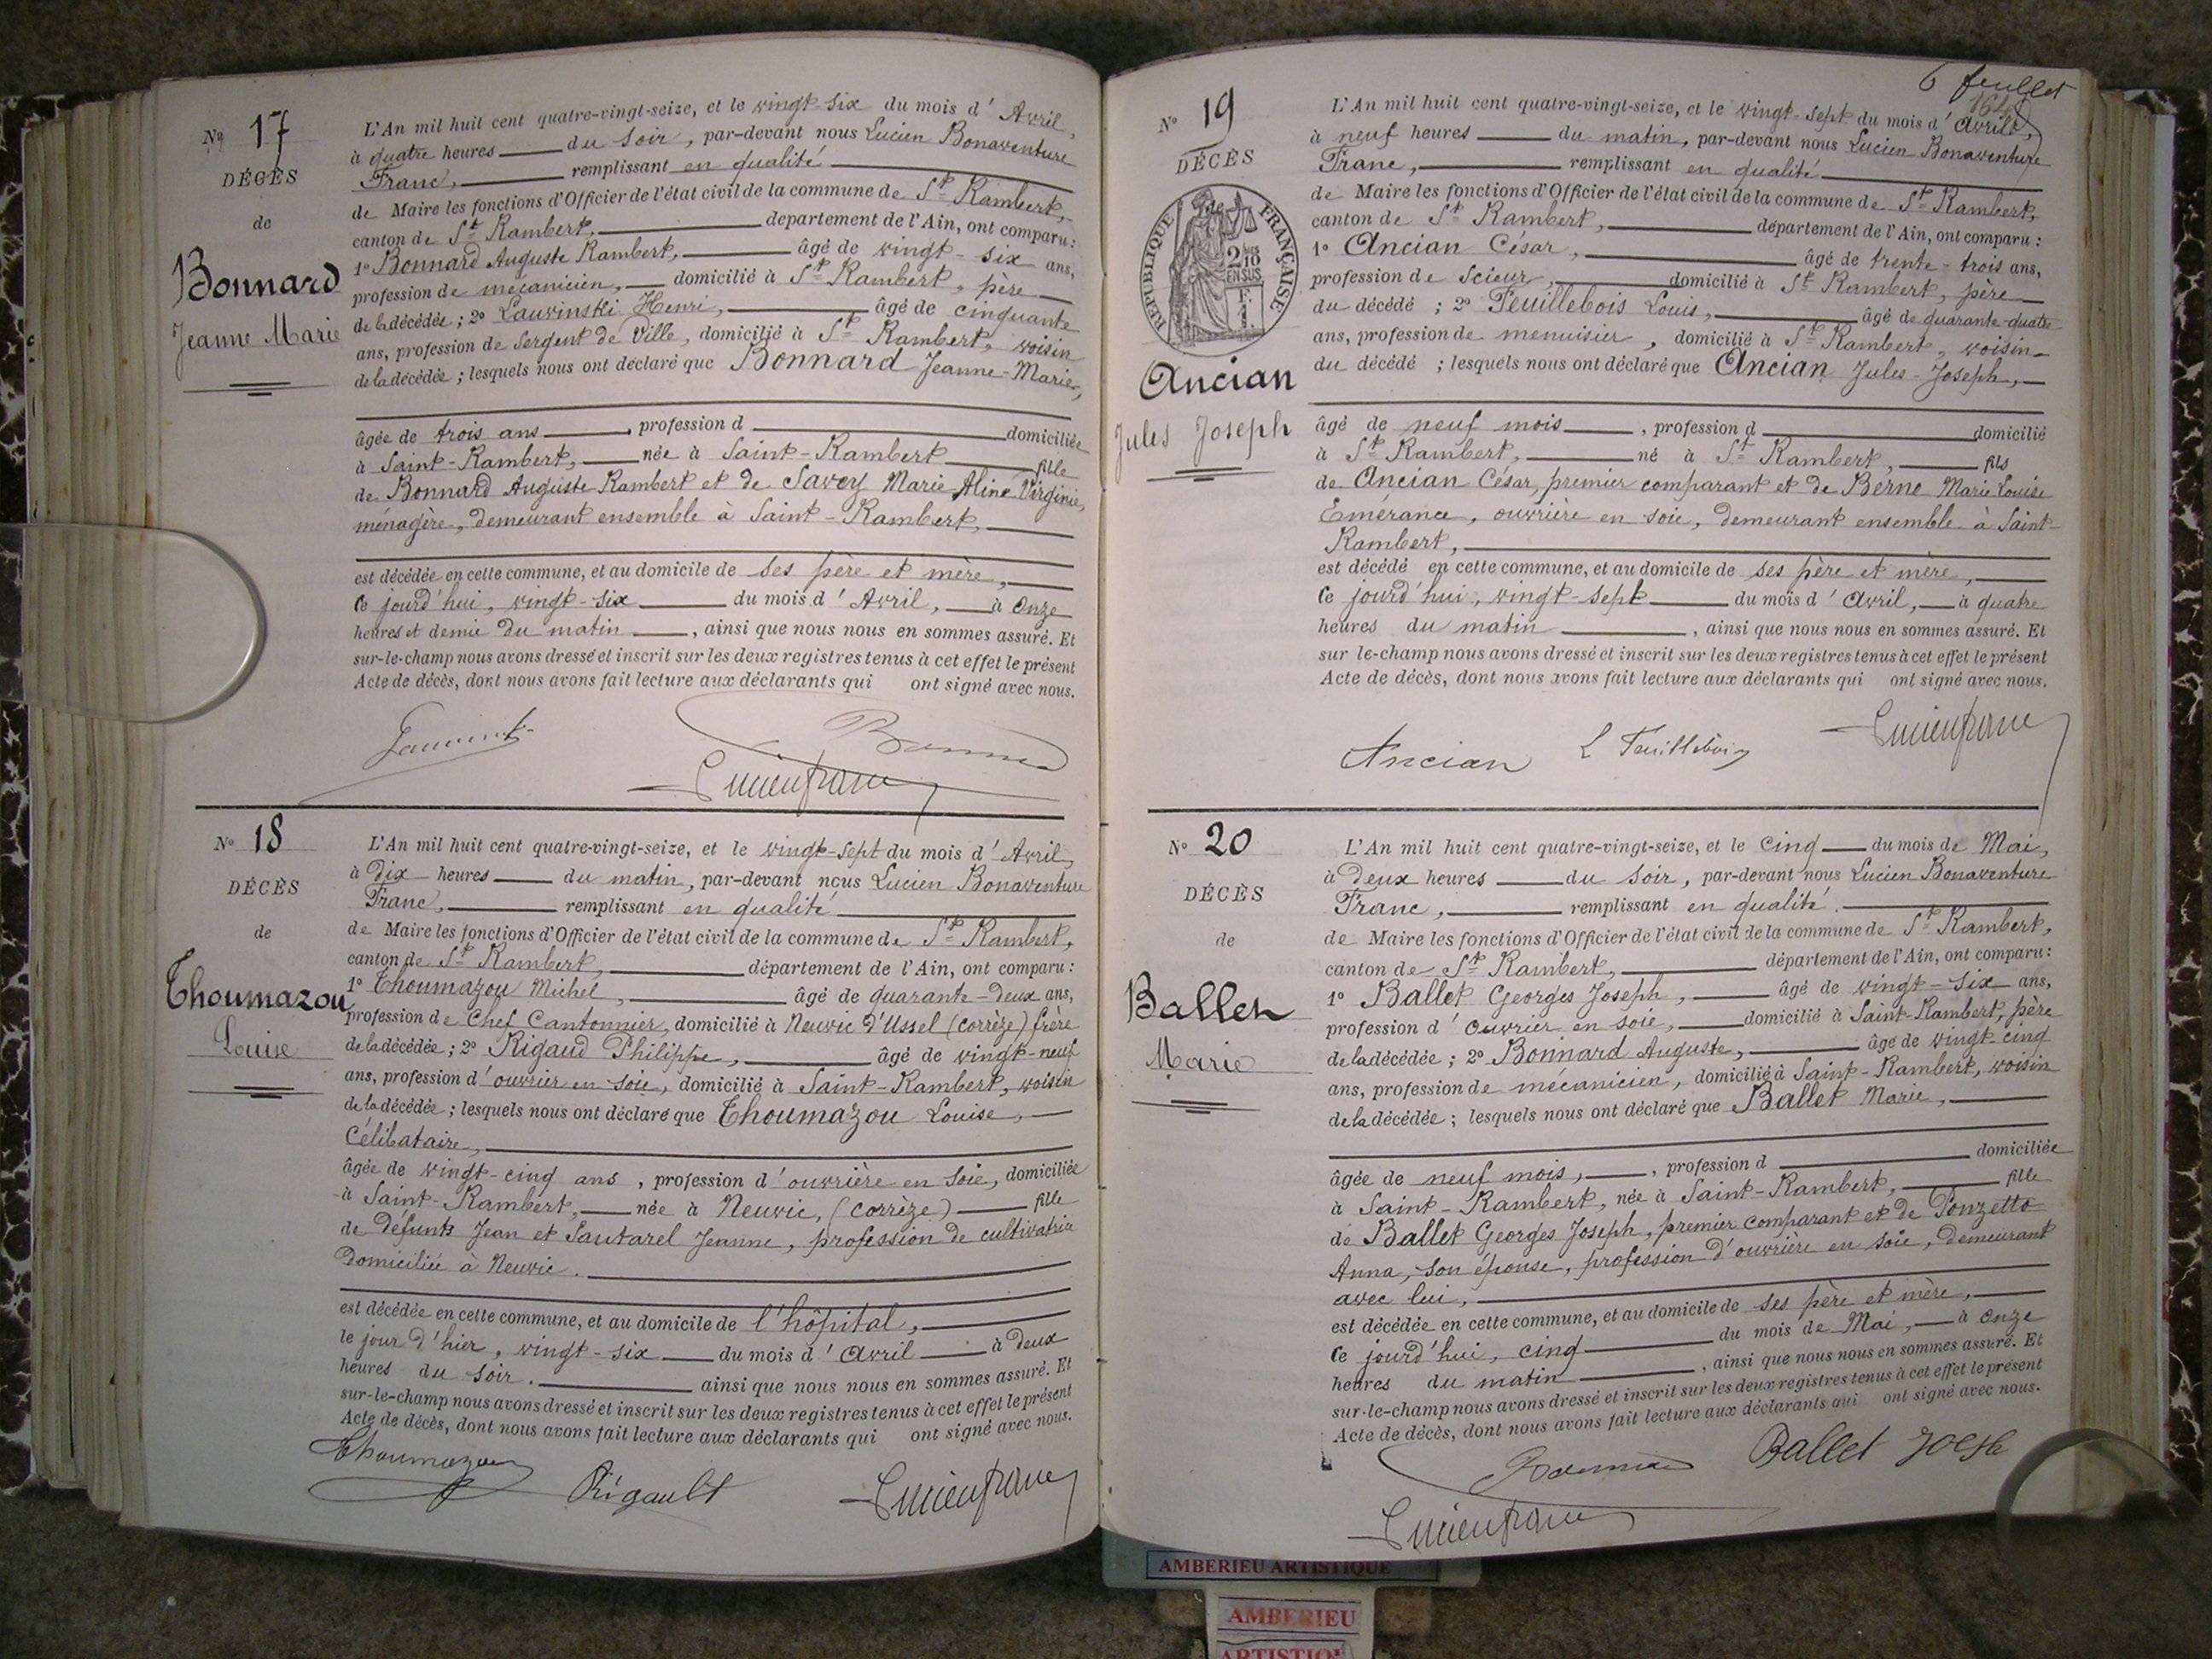 Nº 17
DÉCÈS
de
Bonnard
Jeanne Marie
L'An mil huit cent quatre-vingt-seize, et le vingt-six du mois d'Avril,
à quatre heures du soir, par-devant nous Lucien Bonaventure
Franc, remplissant en qualité
de Maire les fonctions d'Officier de l'état civil de la commune de St Rambert,
canton de St Rambert, département de l'Ain, ont comparu :
1º Bonnard Auguste Rambert, âgé de vingt-six ans,
profession de mécanicien, domicilié à St Rambert, père
de la décédée ; 2º Lauwinski Henri, âgé de cinquante
ans, profession de Sergent de Ville, domicilié à St Rambert, voisin
de la décédée ; lesquels nous ont déclaré que Bonnard Jeanne-Marie,
âgée de trois ans, profession d domiciliée
à Saint-Rambert, née à Saint-Rambert fille
de Bonnard Auguste Rambert et de Savey Marie Aline Virginie,
ménagère, demeurant ensemble à Saint-Rambert,
est décédée en cette commune, et au domicile de ses père et mère,
ce jourd'hui, vingt-six du mois d'Avril, à onze
heures et demie du matin, ainsi que nous nous en sommes assuré. Et
sur-le-champ nous avons dressé et inscrit sur les deux registres tenus à cet effet le présent
Acte de décès, dont nous avons fait lecture aux déclarants qui ont signé avec nous.
Lucien franc
Nº 18
DÉCÈS
de
Thoumazou
Louise
L'An mil huit cent quatre-vingt-seize, et le vingt-sept du mois d'Avril,
à dix heures du matin, par-devant nous Lucien Bonaventure
Franc, remplissant en qualité
de Maire les fonctions d'Officier de l'état civil de la commune de St Rambert,
canton de St Rambert, département de l'Ain, ont comparu :
1º Thoumazou Michel, âgé de quarante-deux ans,
profession de Chef Cantonnier, domicilié à Neuvic d'Ussel (Corrèze) frère
de la décédée ; 2º Rigaud Philippe, âgé de vingt-neuf
ans, profession d'ouvrier en soie, domicilié à Saint-Rambert, voisin
de la décédée ; lesquels nous ont déclaré que Thoumazou Louise,
Célibataire,
âgée de vingt-cinq ans, profession d'ouvrière en soie, domiciliée
à Saint-Rambert, née à Neuvic, (Corrèze) fille
de défunts Jean et Sautarel Jeanne, profession de cultivatrice
domiciliée à Neuvic.
est décédée en cette commune, et au domicile de l'hôpital,
le jour d'hier, vingt-six du mois d'Avril à deux
heures du soir. ainsi que nous nous en sommes assuré. Et
sur-le-champ nous avons dressé et inscrit sur les deux registres tenus à cet effet le présent
Acte de décès, dont nous avons fait lecture aux déclarants qui ont signé avec nous.
Thoumazou Rigault Lucien franc
6 feuillet
Nº 19
DÉCÈS
de
RÉPUBLIQUE FRANÇAISE
2/10 EN SUS
Ancian
Jules Joseph
L'An mil huit cent quatre-vingt-seize, et le vingt-sept du mois d'Avril,
à neuf heures du matin, par-devant nous Lucien Bonaventure
Franc, remplissant en qualité
de Maire les fonctions d'Officier de l'état civil de la commune de St Rambert,
canton de St Rambert, département de l'Ain, ont comparu :
1º Ancian César, âgé de trente-trois ans,
profession de Scieur, domicilié à St Rambert, père
du décédé ; 2º Feuillebois Louis, âgé de quarante-quatre
ans, profession de menuisier, domicilié à St Rambert, voisin
du décédé ; lesquels nous ont déclaré que Ancian Jules-Joseph,
âgé de neuf mois, profession d domicilié
à St Rambert, né à St Rambert, fils
de Ancian César, premier comparant et de Berne Marie Louise
Emérance, ouvrière en soie, demeurant ensemble à Saint-
Rambert,
est décédé en cette commune, et au domicile de ses père et mère,
ce jourd'hui, vingt-sept du mois d'Avril, à quatre
heures du matin, ainsi que nous nous en sommes assuré. Et
sur-le-champ nous avons dressé et inscrit sur les deux registres tenus à cet effet le présent
Acte de décès, dont nous avons fait lecture aux déclarants qui ont signé avec nous.
Ancian L Feuillebois Lucien franc
Nº 20
DÉCÈS
de
Ballet
Marie
L'An mil huit cent quatre-vingt-seize, et le cinq du mois de Mai,
à deux heures du soir, par-devant nous Lucien Bonaventure
Franc, remplissant en qualité.
de Maire les fonctions d'Officier de l'état civil de la commune de St Rambert,
canton de St Rambert, département de l'Ain, ont comparu :
1º Ballet Georges Joseph, âgé de vingt-six ans,
profession d'ouvrier en soie, domicilié à Saint-Rambert, père
de la décédée ; 2º Bonnard Auguste, âgé de vingt-cinq
ans, profession de mécanicien, domicilié à Saint-Rambert, voisin
de la décédée ; lesquels nous ont déclaré que Ballet Marie,
âgée de neuf mois, profession d domiciliée
à Saint-Rambert, née à Saint-Rambert, fille
de Ballet Georges Joseph, premier comparant et de Ponzetto
Anna, son épouse, profession d'ouvrière en soie, demeurant
avec lui,
est décédée en cette commune, et au domicile de ses père et mère,
ce jourd'hui, cinq du mois de Mai, à onze
heures du matin, ainsi que nous nous en sommes assuré. Et
sur-le-champ nous avons dressé et inscrit sur les deux registres tenus à cet effet le présent
Acte de décès, dont nous avons fait lecture aux déclarants qui ont signé avec nous.
Ballet
Lucien franc
AMBERIEU ARTISTIQUE
AMBERIEU